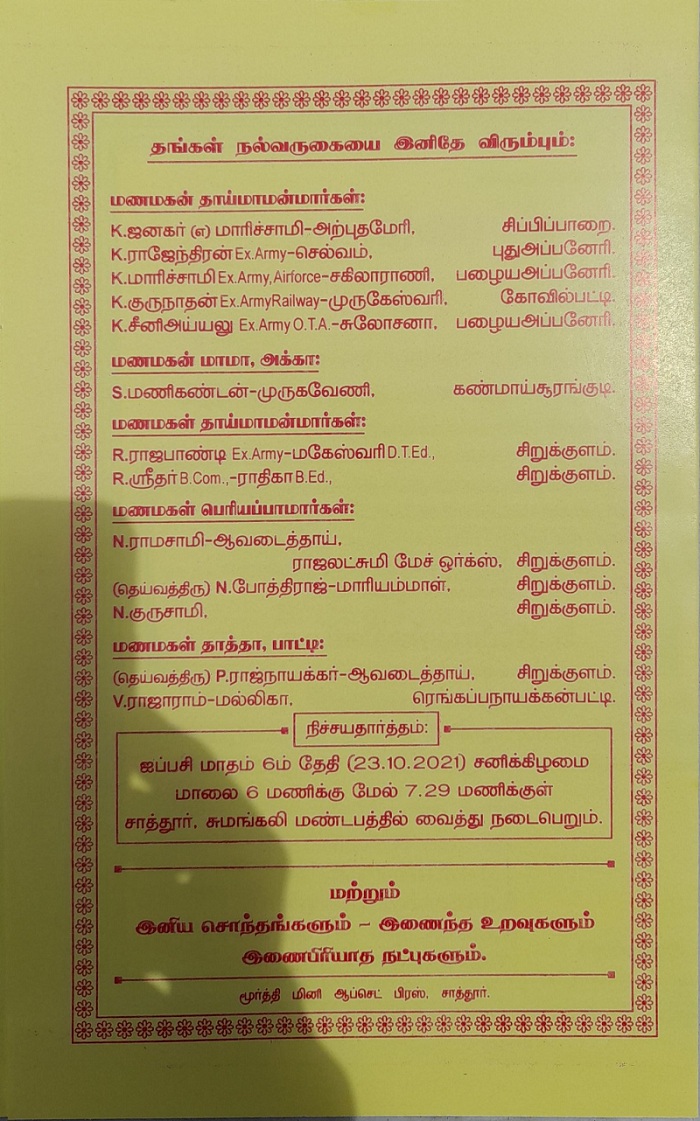 தங்கள் நல்வருகையை இனிதே விரும்பும்:
மணமகன் தாய்மாமன்மார்கள்:
K.ஜனகர் (எ) மாரிச்சாமி-அற்புதமேரி, சிப்பிப்பாறை.
K.ராஜேந்திரன் Ex.Army-செல்வம், புதுஅப்பனேரி.
K.மாரிச்சாமி Ex.Army,Airforce-சகிலாராணி, பழையஅப்பனேரி.
K.குருநாதன் Ex.ArmyRailway-முருகேஸ்வரி, கோவில்பட்டி.
K.சீனிஅய்யலு Ex.Army O.T.A.-சுலோசனா, பழையஅப்பனேரி.
மணமகன் மாமா, அக்கா:
S.மணிகண்டன்-முருகவேணி, கண்மாய்சூரங்குடி.
மணமகள் தாய்மாமன்மார்கள்:
R.ராஜபாண்டி Ex.Army-மகேஸ்வரி D.T.Ed., சிறுக்குளம்.
R.ஸ்ரீதர் B.Com.,-ராதிகா B.Ed., சிறுக்குளம்.
மணமகள் பெரியப்பாமார்கள்:
N.ராமசாமி-ஆவடைத்தாய்,
ராஜலட்சுமி மேச் ஒர்க்ஸ், சிறுக்குளம்.
(தெய்வத்திரு) N.போத்திராஜ்-மாரியம்மாள், சிறுக்குளம்.
N.குருசாமி, சிறுக்குளம்.
மணமகள் தாத்தா, பாட்டி:
(தெய்வத்திரு) P.ராஜ்நாயக்கர்-ஆவடைத்தாய், சிறுக்குளம்.
V.ராஜாராம்-மல்லிகா, ரெங்கப்பநாயக்கன்பட்டி.
நிச்சயதார்த்தம்:
ஐப்பசி மாதம் 6ம் தேதி (23.10.2021) சனிக்கிழமை
மாலை 6 மணிக்கு மேல் 7.29 மணிக்குள்
சாத்தூர், சுமங்கலி மண்டபத்தில் வைத்து நடைபெறும்.
மற்றும்
இனிய சொந்தங்களும் - இணைந்த உறவுகளும்
இணைபிரியாத நட்புகளும்.
மூர்த்தி மினி ஆப்செட் பிரஸ், சாத்தூர்.